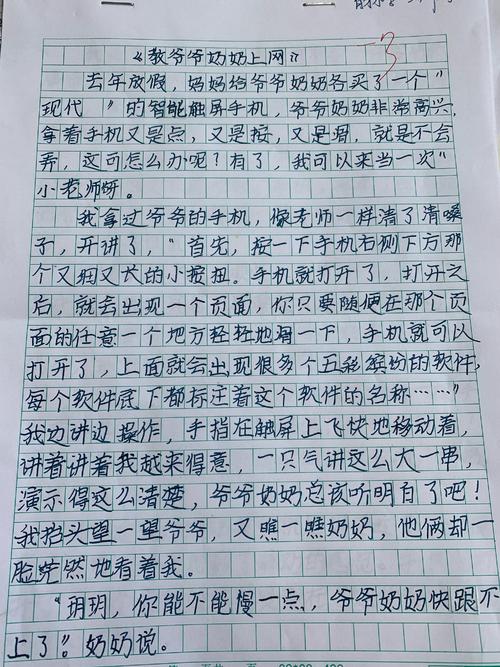 《教爷爷奶奶上网》
去年放假，妈妈给爷爷奶奶各买了一个"
现代"的智能触屏手机，爷爷奶奶非常高兴，
拿着手机又是点，又是按，又是滑，就是不会
弄，这可怎么办呢？有了，我可以来当一次"
小老师呀。
我拿过爷爷的手机，像老师一样清了清嗓
子，开讲了，"首先，按一下手机右侧下方那
个又细又长的小按扭。手机就打开了，打开之
后，就会出现一个页面，你只要随便在那个页
面的任意一个地方轻轻地滑一下，手机就可以
打开了，上面就会出现很多个五彩缤纷的软件，
每个软件底下都标注着这个软件的名称……"
我边讲边操作，手指在触屏上飞快地移动着，
讲着讲着我越来得意，一只气讲这么大一串，
演示得这么清楚，爷爷奶奶总该听明白了吧！
我抬头望一望爷爷，又瞧一瞧奶奶，他俩却一
脸茫然地看着我。
"玥玥，你能不能慢一点，爷爷奶奶快跟不
上了"。奶奶说。